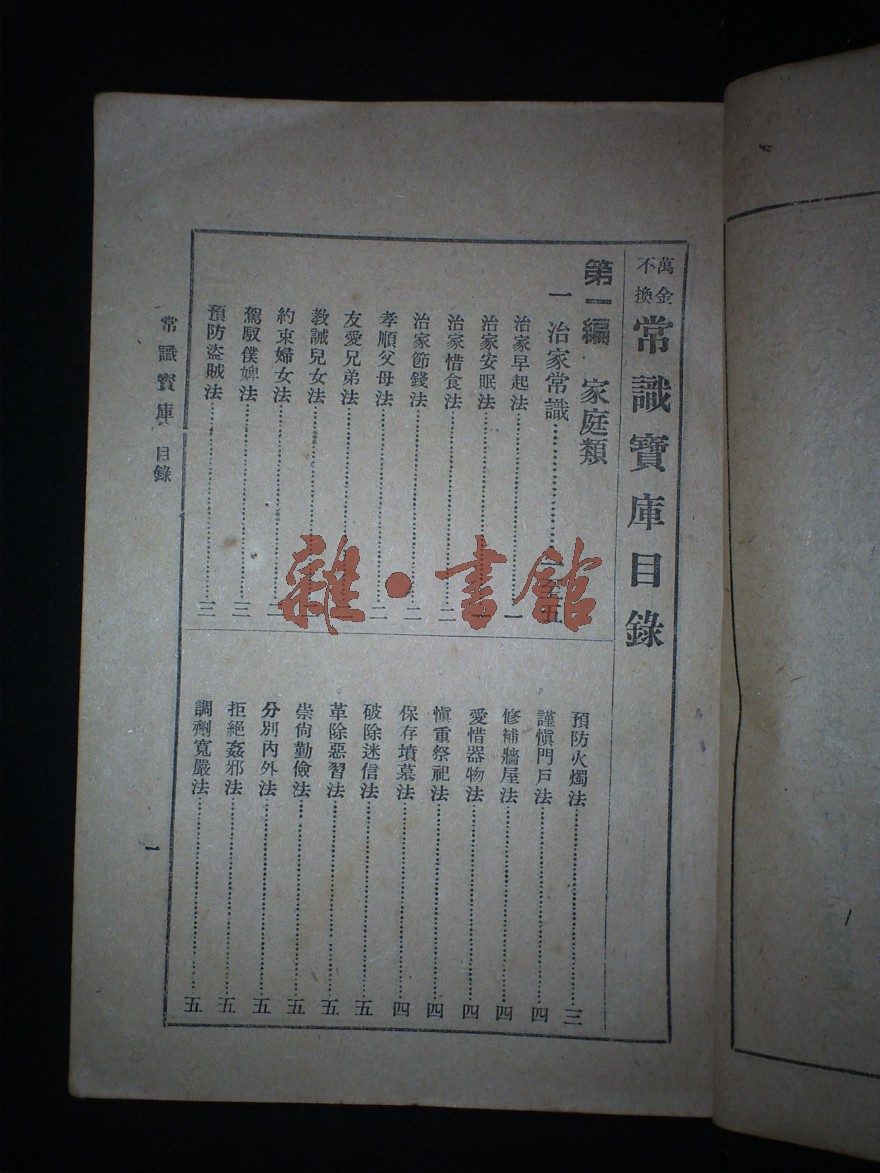 萬金不換
常識寶庫目錄
第一編 家庭類
一 治家常識……一至五
治家早起法……一
治家安眠法
治家惜食法……二
治家節錢法……二
孝順父母法……二
友愛兄弟法
教誡兒女法
約束婦女法……二
駕馭僕婢法……三
預防盜賊法……三
預防火燭法……三
謹慎門戶法……四
修補牆屋法……四
愛惜器物法……四
慎重祭祀法……四
保存墳墓法……四
破除迷信法……五
革除惡習法……五
崇尙勤儉法……五
分別內外法……五
拒絕姦邪法……五
調劑寬嚴法……五
常識寶庫 目錄
一
雜·書館